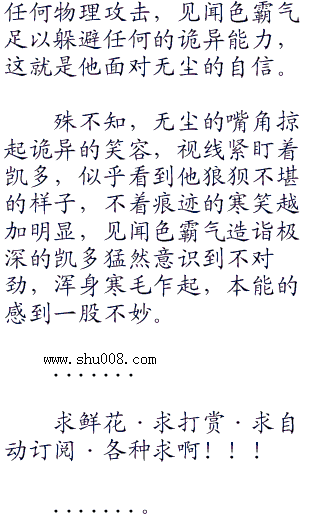 任何物理攻击，见闻色霸气
足以躲避任何的诡异能力，
这就是他面对无尘的自信。
殊不知，无尘的嘴角掠
起诡异的笑容，视线紧盯着
凯多，似乎看到他狼狈不堪
的样子，不着痕迹的寒笑越
加明显，见闻色霸气造诣极
深的凯多猛然意识到不对
劲，浑身寒毛乍起，本能的
感到一股不妙。
www.shu008.com
·······
求鲜花·求打赏·求自
动订阅·各种求啊！！！
·······。